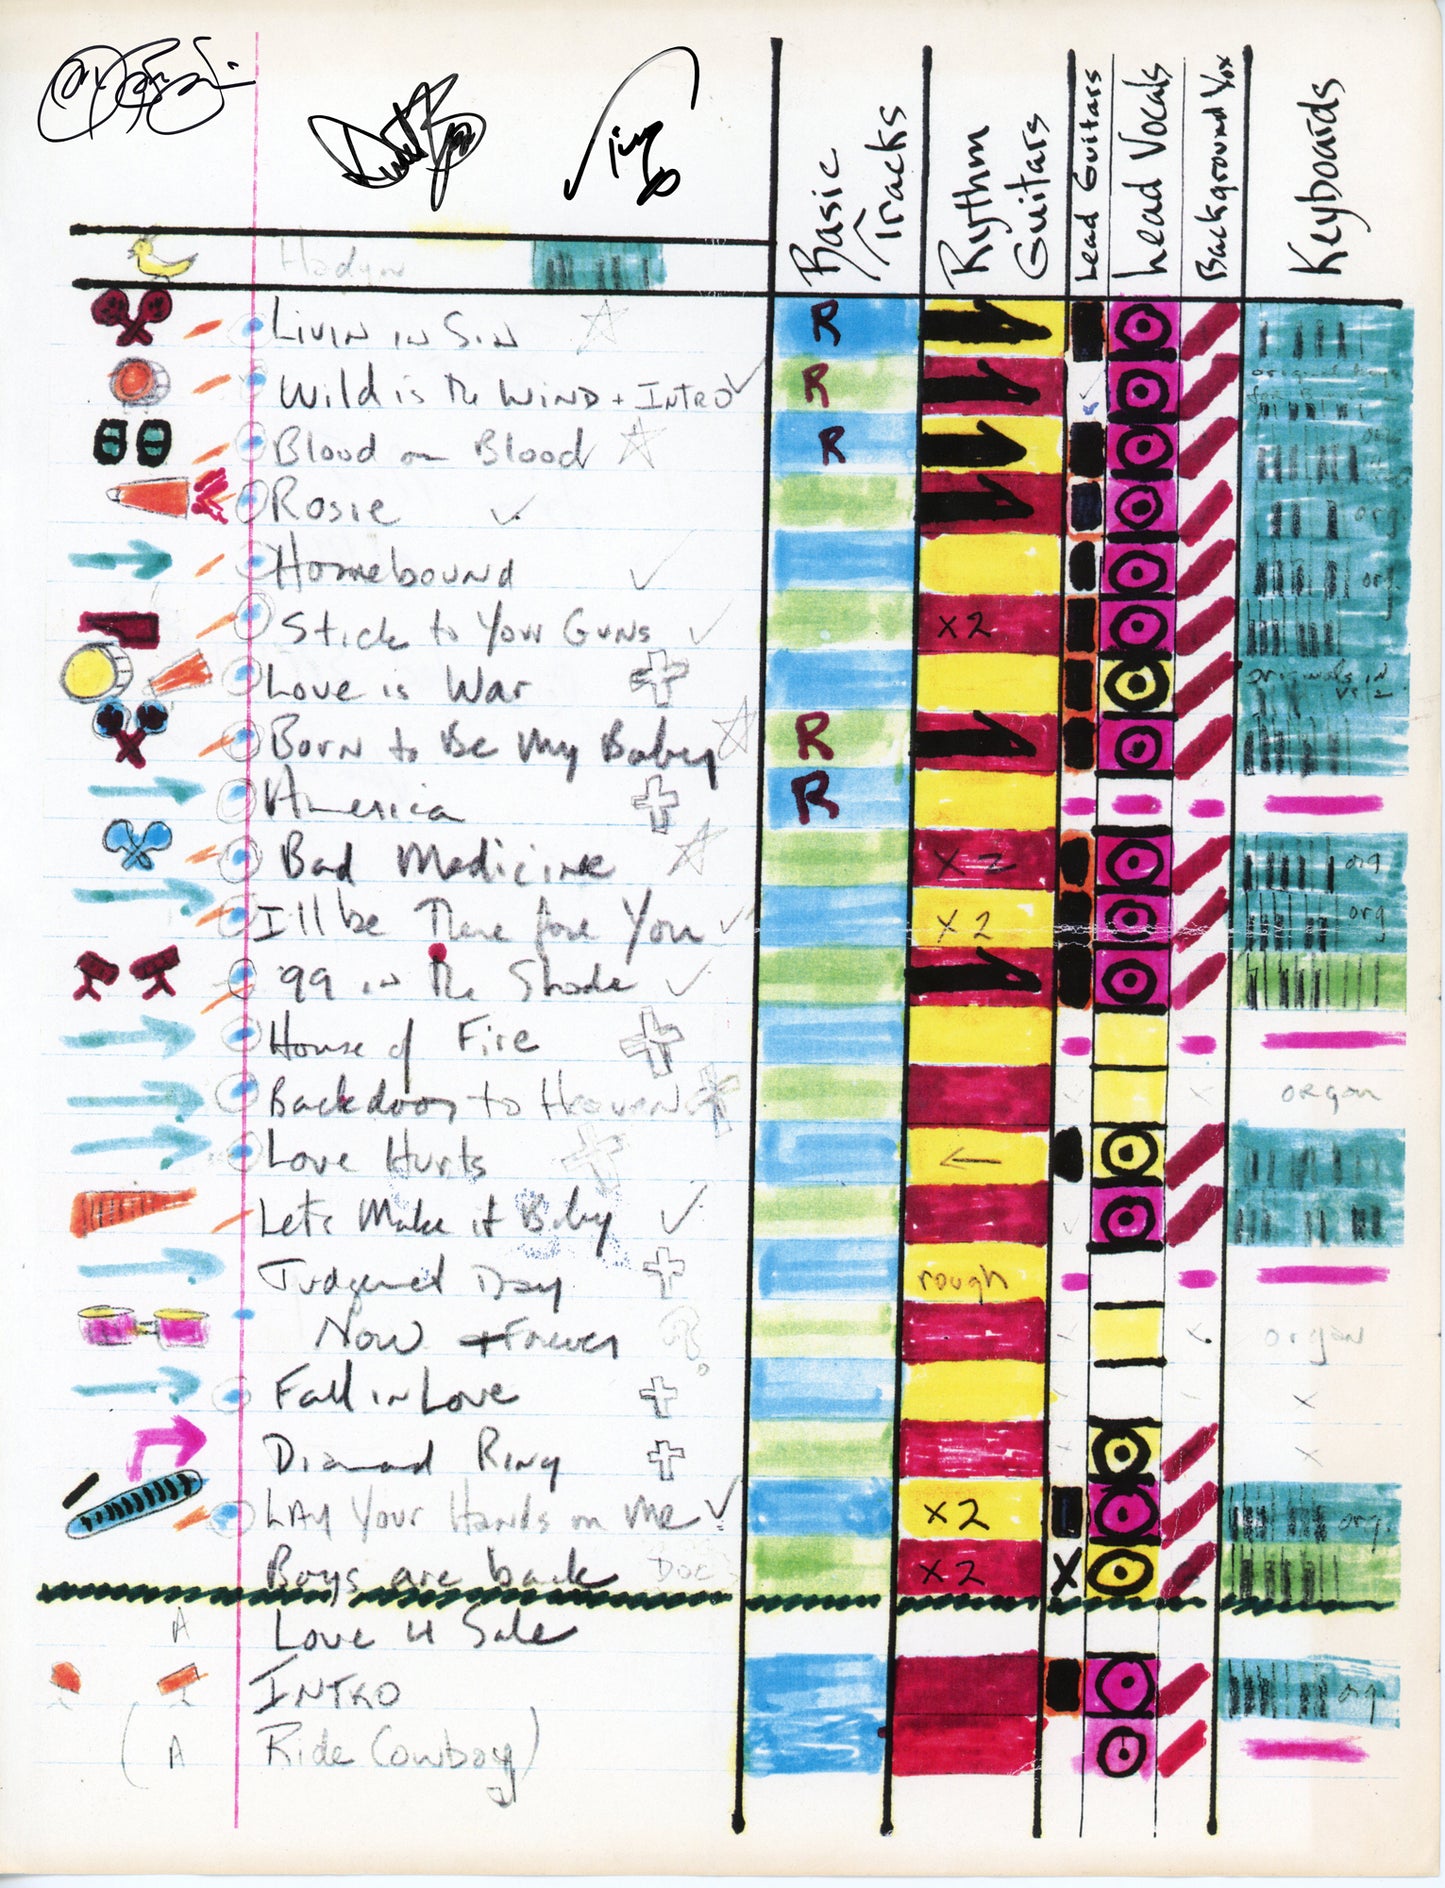 Basic Tracks
Rythm Guitars
Lead Guitars
Lead Vocals
Background Vox
Keyboards
Livin in Sin R
Wild is the Wind + INTRO R
Blood on Blood R
Rosie org
Homebound org
Stick to Your Guns x2
Love is War originals in
Born to Be My Baby R
America R
Bad Medicine x2 org
I'll be There for You x2 org
99 in the Shade
House of Fire
Backdoor to Heaven organ
Love Hurts
Let's Make it Baby
Judgement Day rough
Now + Forever ? organ
Fall in Love x
Diamond Ring x
LAY Your Hands on Me x2 org.
Boys are back DOC x2 X
A Love 4 Sale
INTRO org
( A Ride Cowboy )